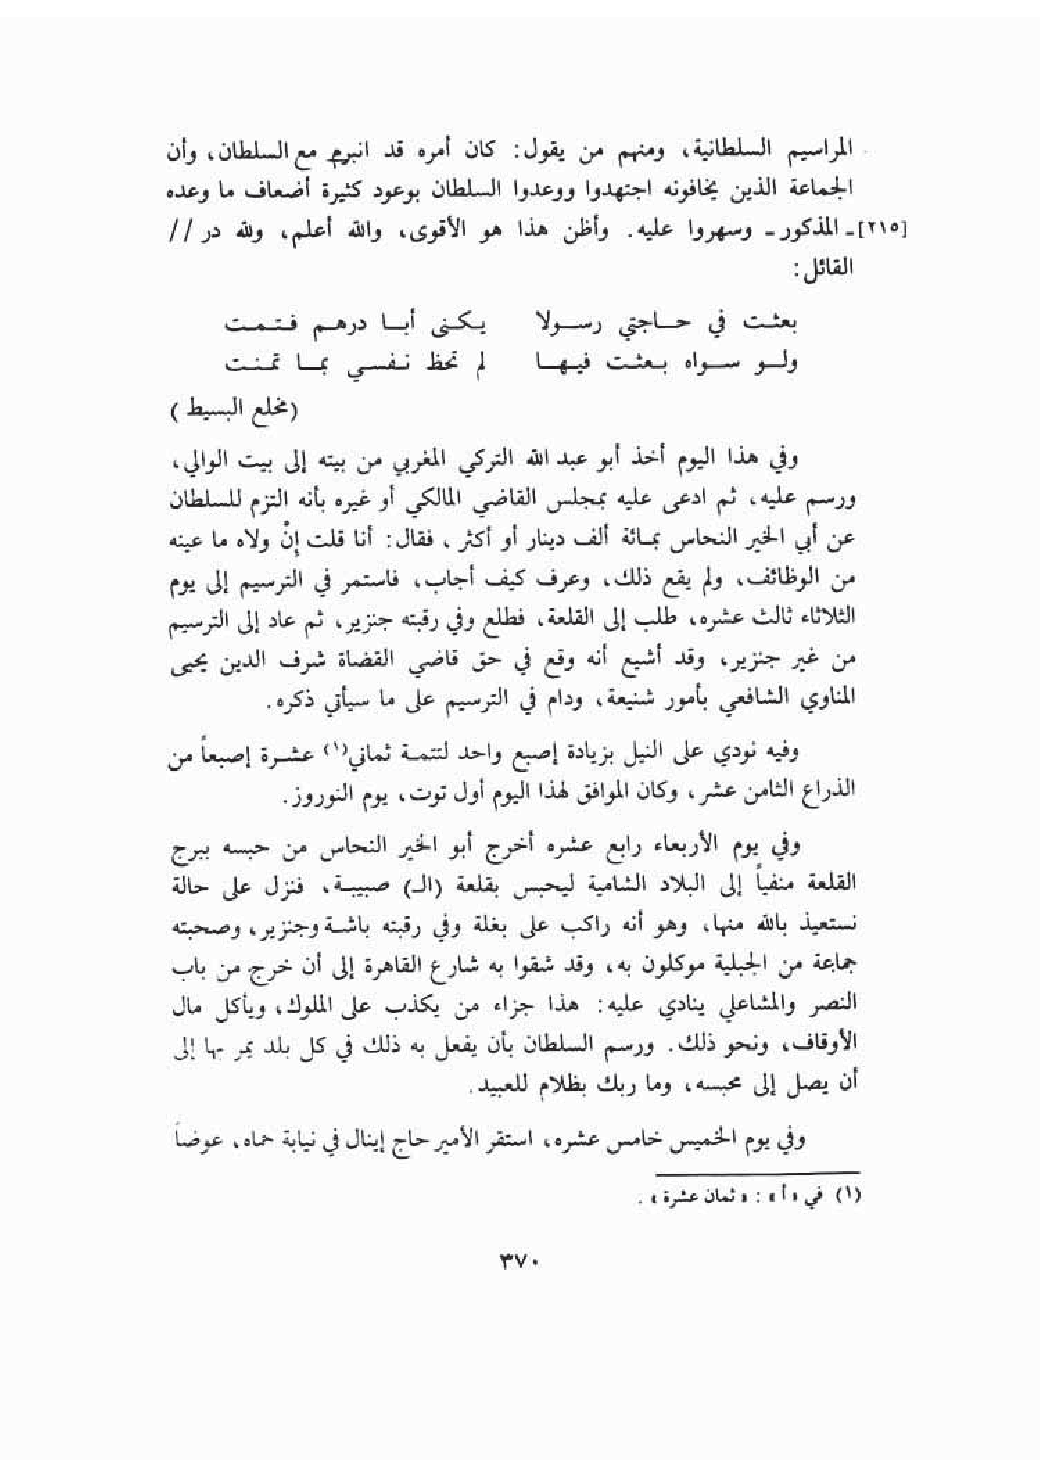 المراسيم السلطانية، ومنهم من يقول: كان أمره قد انبرم مع السلطان، وأن
الجماعة الذين يخافونه اجتهدوا ووعدوا السلطان بوعود كثيرة أضعاف ما وعده
[٢١٥] ـ المذكور ـ وسهروا عليه. وأظن هذا هو الأقوى، والله أعلم، ولله در //
القائل:
بعثت في حاجتي رسولا يكنى أبا درهم فتمت
ولو سواه بعثت فيها لم تحظ نفسي بما تمنت
(مخلع البسيط)
وفي هذا اليوم أخذ أبو عبد الله التركي المغربي من بيته إلى بيت الوالي،
ورسم عليه، ثم ادعى عليه بمجلس القاضي المالكي أو غيره بأنه التزم للسلطان
عن أبي الخير النحاس بمائة ألف دينار أو أكثر، فقال: أنا قلت إنْ ولاه ما عينه
من الوظائف، ولم يقع ذلك، وعرف كيف أجاب، فاستمر في الترسيم إلى يوم
الثلاثاء ثالث عشره، طلب إلى القلعة، فطلع وفي رقبته جنزير، ثم عاد إلى الترسيم
من غير جنزير، وقد أشيع أنه وقع في حق قاضي القضاة شرف الدين يحيى
المناوي الشافعي بأمور شنيعة، ودام في الترسيم على ما سيأتي ذكره.
وفيه نودي على النيل بزيادة إصبع واحد لتتمة ثماني(١) عشرة إصبعاً من
الذراع الثامن عشر، وكان الموافق لهذا اليوم أول توت، يوم النوروز.
وفي يوم الأربعاء رابع عشره أخرج أبو الخير النحاس من حبسه ببرج
القلعة منفياً إلى البلاد الشامية ليحبس بقلعة (الـ) صبيبة، فنزل على حالة
نستعيذ بالله منها، وهو أنه راكب على بغلة وفي رقبته باشة وجنزير، وصحبته
جماعة من الجبلية موكلون به، وقد شقوا به شارع القاهرة إلى أن خرج من باب
النصر والمشاعلي ينادي عليه: هذا جزاء من يكذب على الملوك، ويأكل مال
الأوقاف، ونحو ذلك. ورسم السلطان بأن يفعل به ذلك في كل بلد يمر بها إلى
أن يصل إلى محبسه، وما ربك بظلام للعبيد.
وفي يوم الخميس خامس عشره، استقر الأمير حاج إينال في نيابة حماه، عوضاً
(١) في «أ»: «ثمان عشرة».
٣٧٠